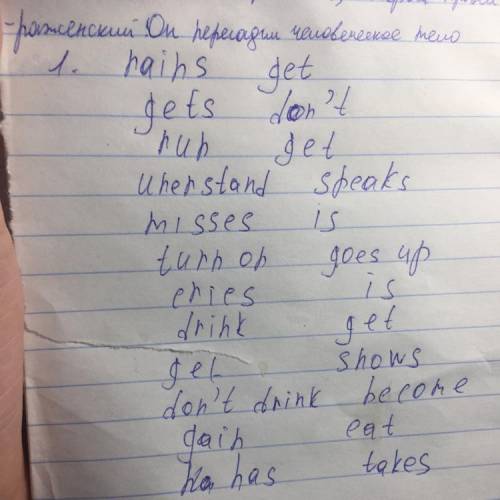 -раженский Он пересадил человеческое тело
1. rains get
gets don't
run get
unerstand speaks
misses is
turn on goes up
cries is
drink get
get shows
don't drink become
gain eat
has takes